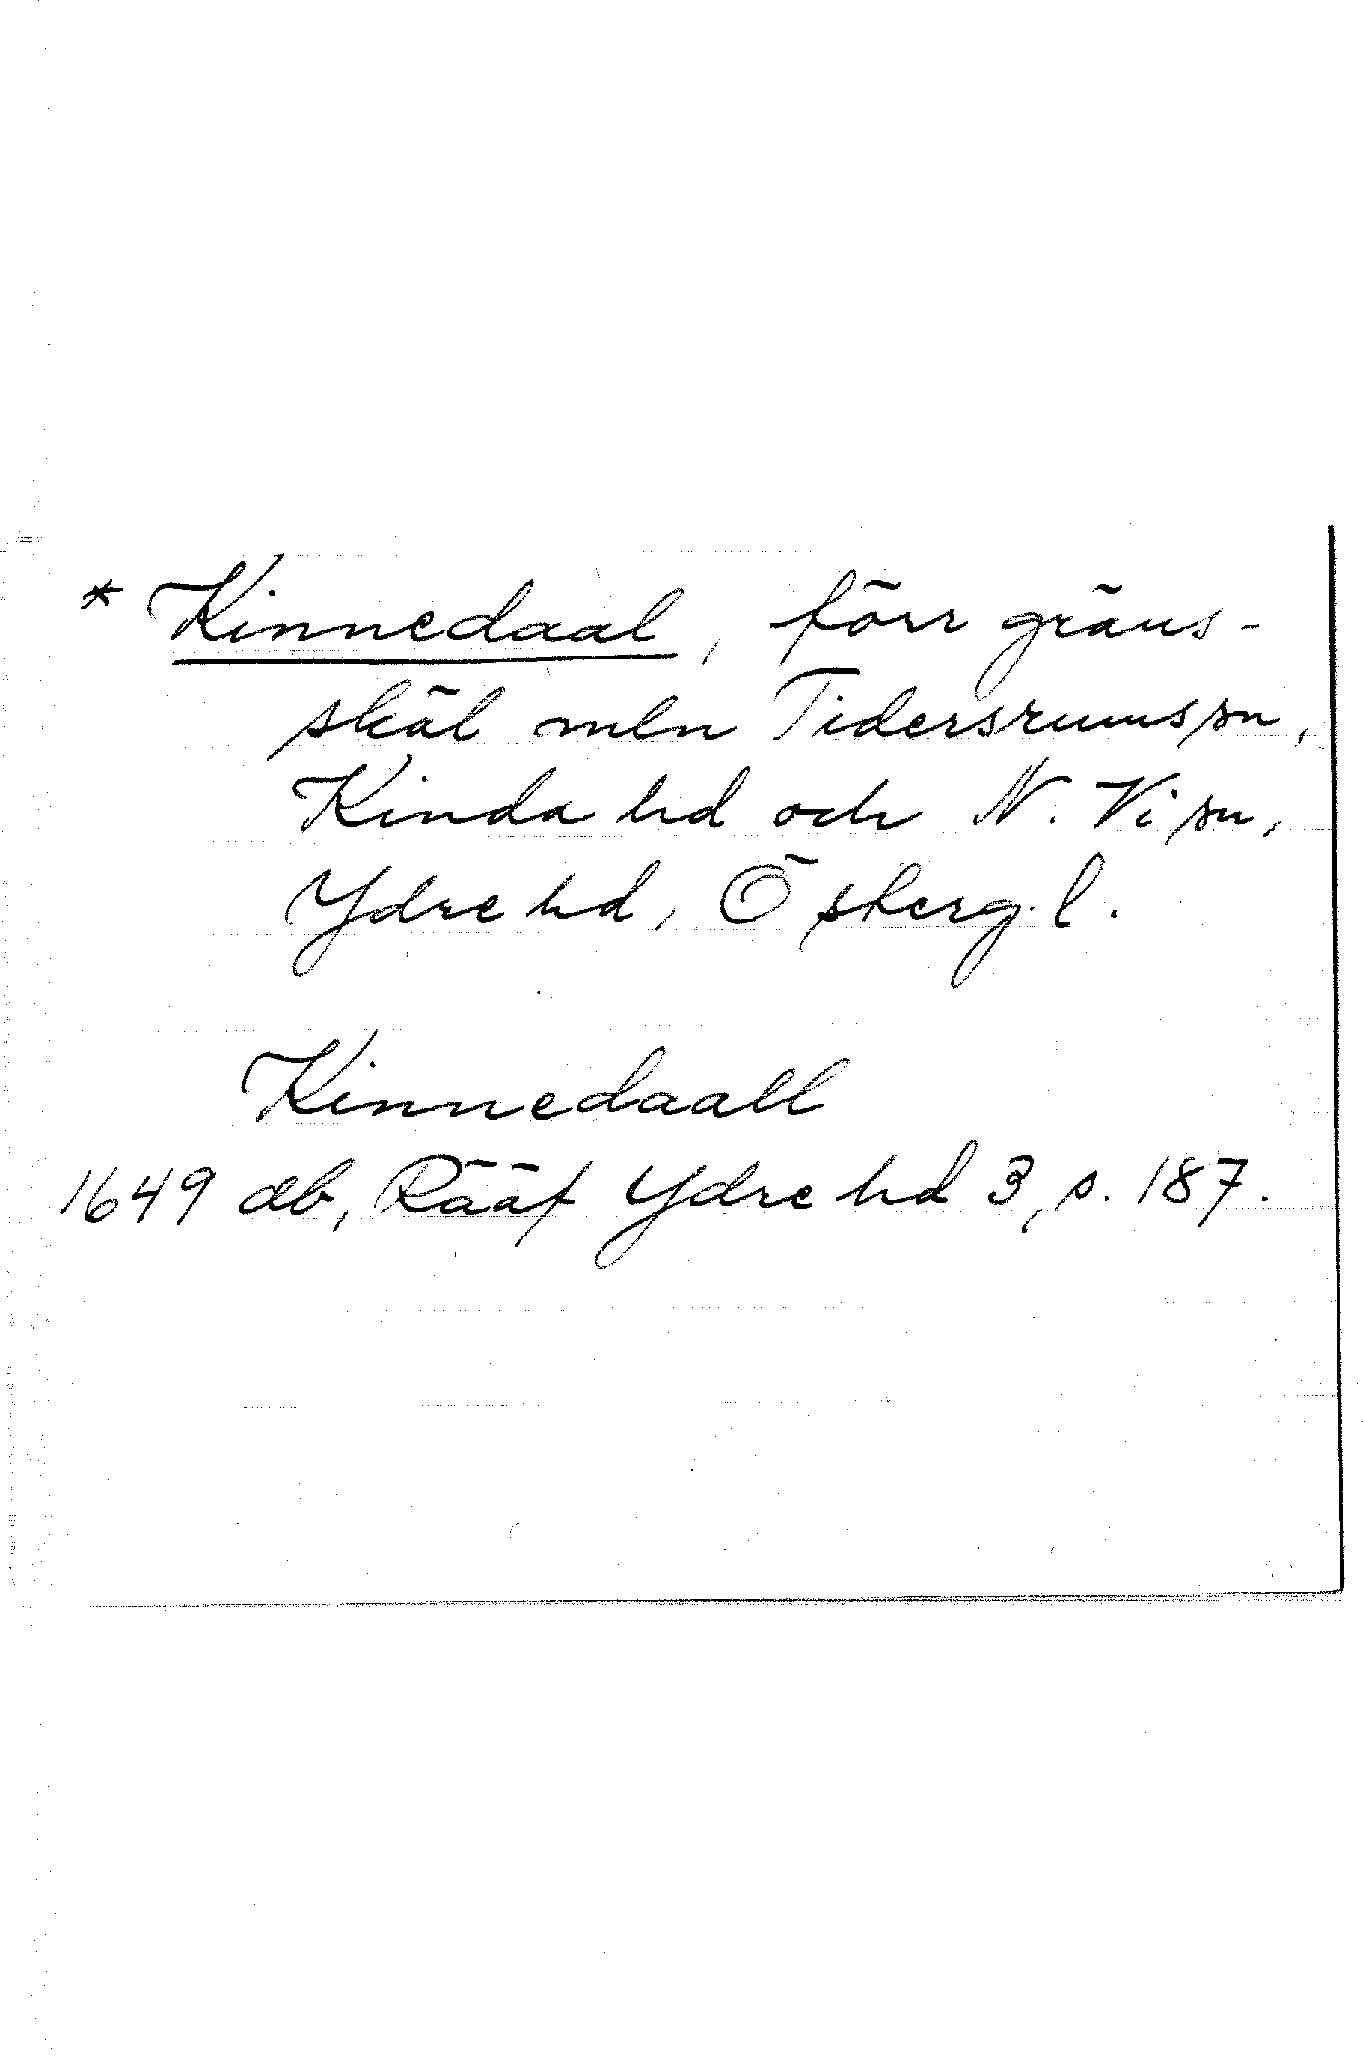 * Kinnedaal, förr gräns-
skäl mln Tidersrums sn,
Kinda hd och N. Vi sn,
Ydre hd, Östergl.
Kinnedaall
1649 db, Rääf Ydre hd 3, s. 187.